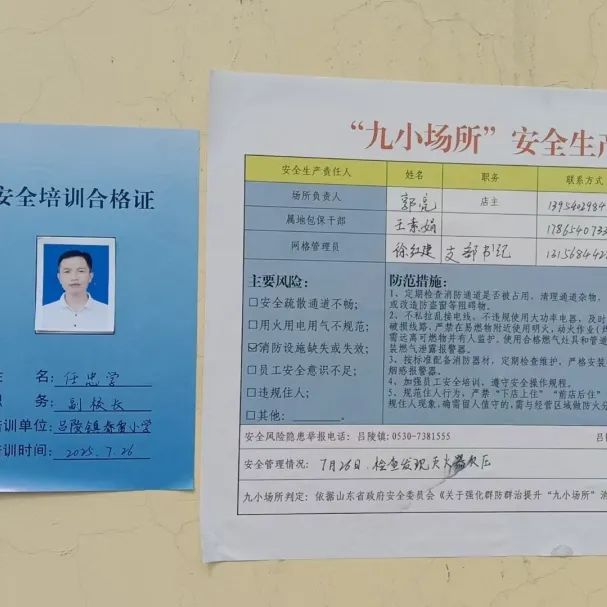 安全培训合格证
名：任忠学
务：副校长
培训单位：吕陵镇春雷小学
培训时间：2025.7.26
“九小场所”安全生产
安全生产责任人 姓名 职务 联系方式
场所负责人 郭亮 店主
属地包保干部 王素娟
网格管理员 徐红建 支部书记
主要风险：
□安全疏散通道不畅；
□用火用电用气不规范；
☑消防设施缺失或失效；
□员工安全意识不足；
□违规住人；
□其他：
防范措施：
1、定期检查消防通道是否被占用，清理通道杂物，
或改造防盗窗等阻碍物。
2、不私拉乱接电线、不违规使用大功率电器，及时
破损线路，严禁在易燃物附近使用明火，动火作业
需远离可燃物并有人监护。使用合格燃气灶具和管道
装燃气泄露报警器。
3、按标准配备消防器材，定期检查维护，严格安装
烟感报警器。
4、加强员工安全培训，遵守安全操作规程。
5、规范住人行为，严禁“下店上住”“前店后住”
规住人现象，确需留人值守的，需与经营区域做防火分
安全风险隐患举报电话：吕陵镇：0530-7381555
安全管理情况：7月26日，检查发现灭火器欠压
九小场所判定：依据山东省政府安全委员会《关于强化群防群治提升“九小场所”消